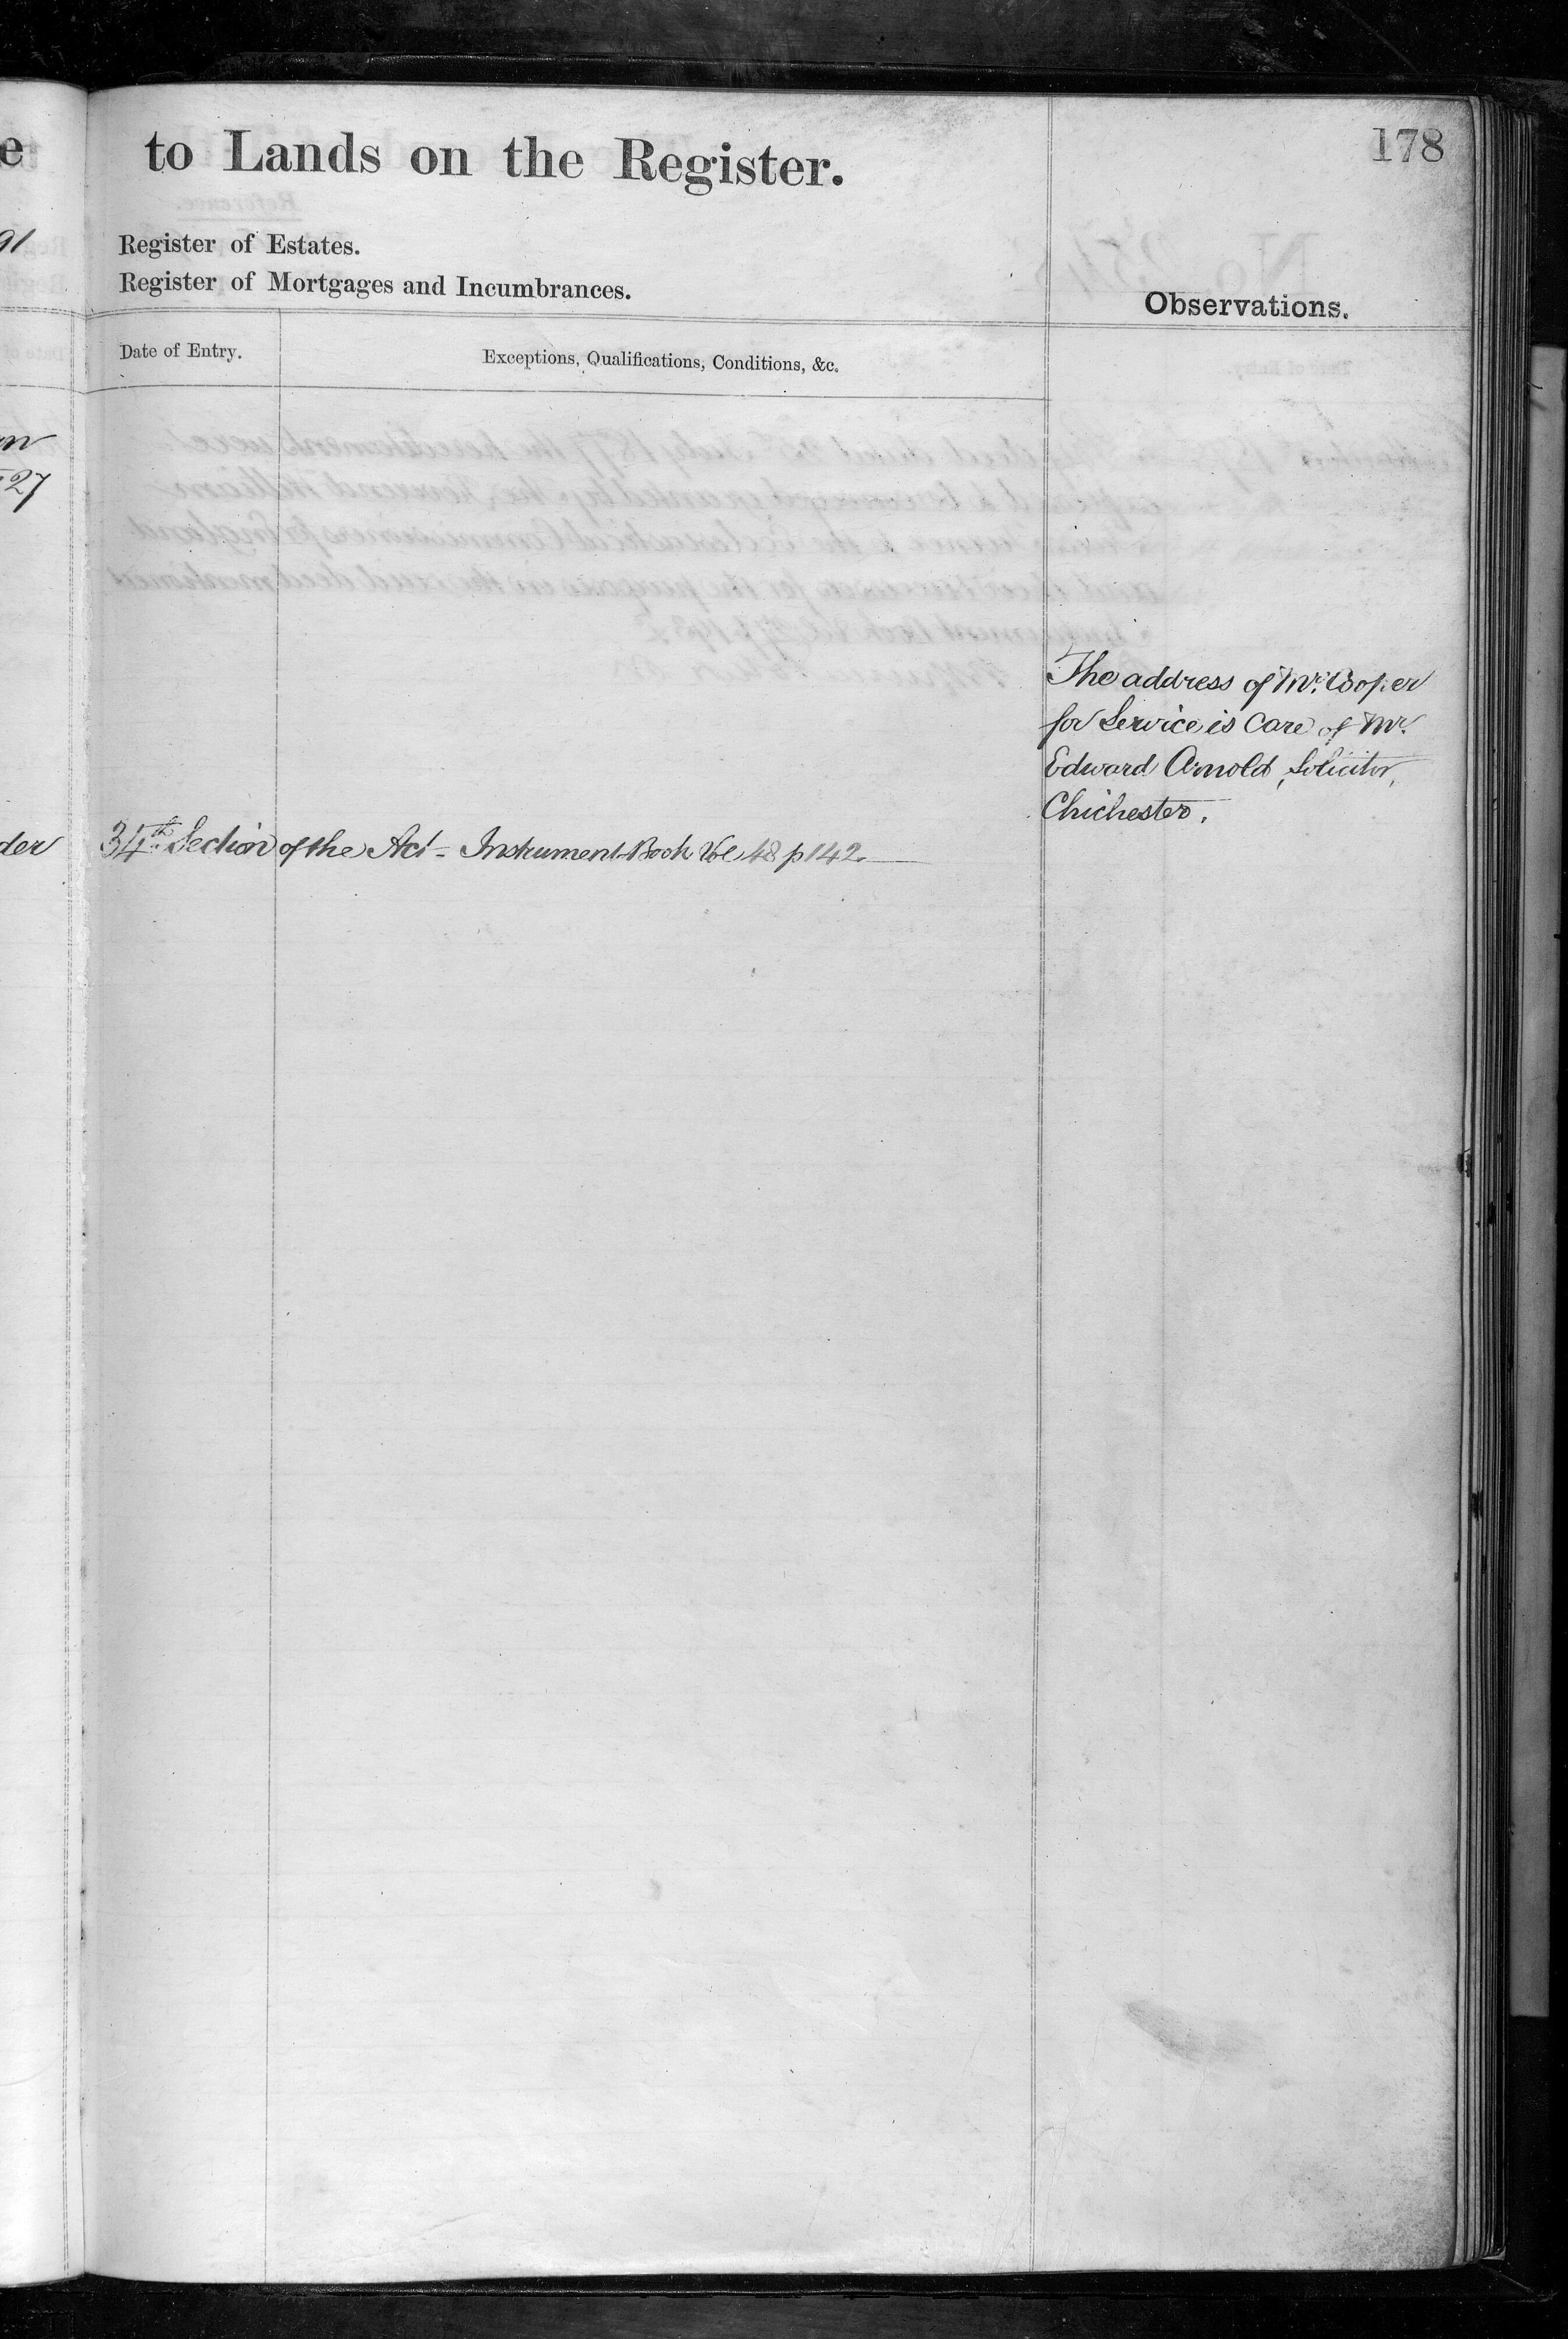 178
e to Lands on the Register.
91
Register of Estates.
Register of Mortgages and Incumbrances.
Observations.
Date of Entry.
Exceptions, Qualifications, Conditions, &c.
27
The address of Mr. Cooper
for Service is Care of Mr.
Edward Arnold, Solicitor,
Chichester.
der 34th Section of the Act - Instrument Book Vol 48 p 142.